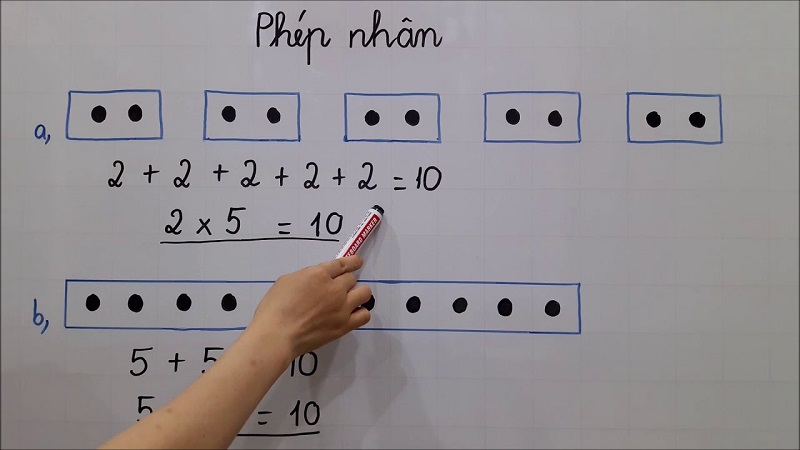 Phép nhân
a,
2 + 2 + 2 + 2 + 2 = 10
2 x 5 = 10
BOARD MARKER
b,
5 + 5 10
5 = 10